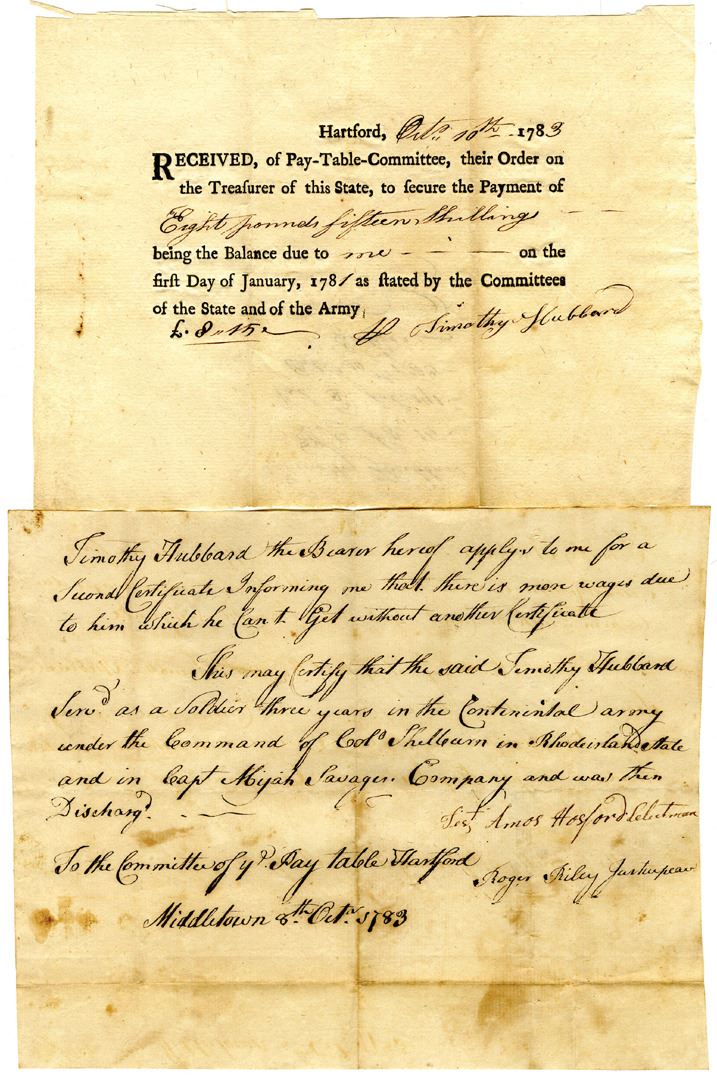 Hartford, Octr. 10th. 1783
RECEIVED, of Pay-Table-Committee, their Order on
the Treasurer of this State, to secure the Payment of
Eight pounds fifteen Shillings
being the Balance due to me on the
first Day of January, 1781 as stated by the Committees
of the State and of the Army
£. 8 " 15 Timothy Hubbard
Timothy Hubbard the Bearer hereof applys to me for a
Second Certificate Informing me that there is more wages due
to him which he Cant. Get without another Certificate
This may Certify that the said Timothy Hubbard
Servd as a Soldier three years in the Continental army
under the Command of Colo Shelburn in Rhodeisland State
and in Capt Mijah Savages. Company and was then
Dischargd.
Test Amos Hosford Selectman
To the Committee of ye Pay table Hartford
Roger Riley
Middletown 8th. Octr. 1783